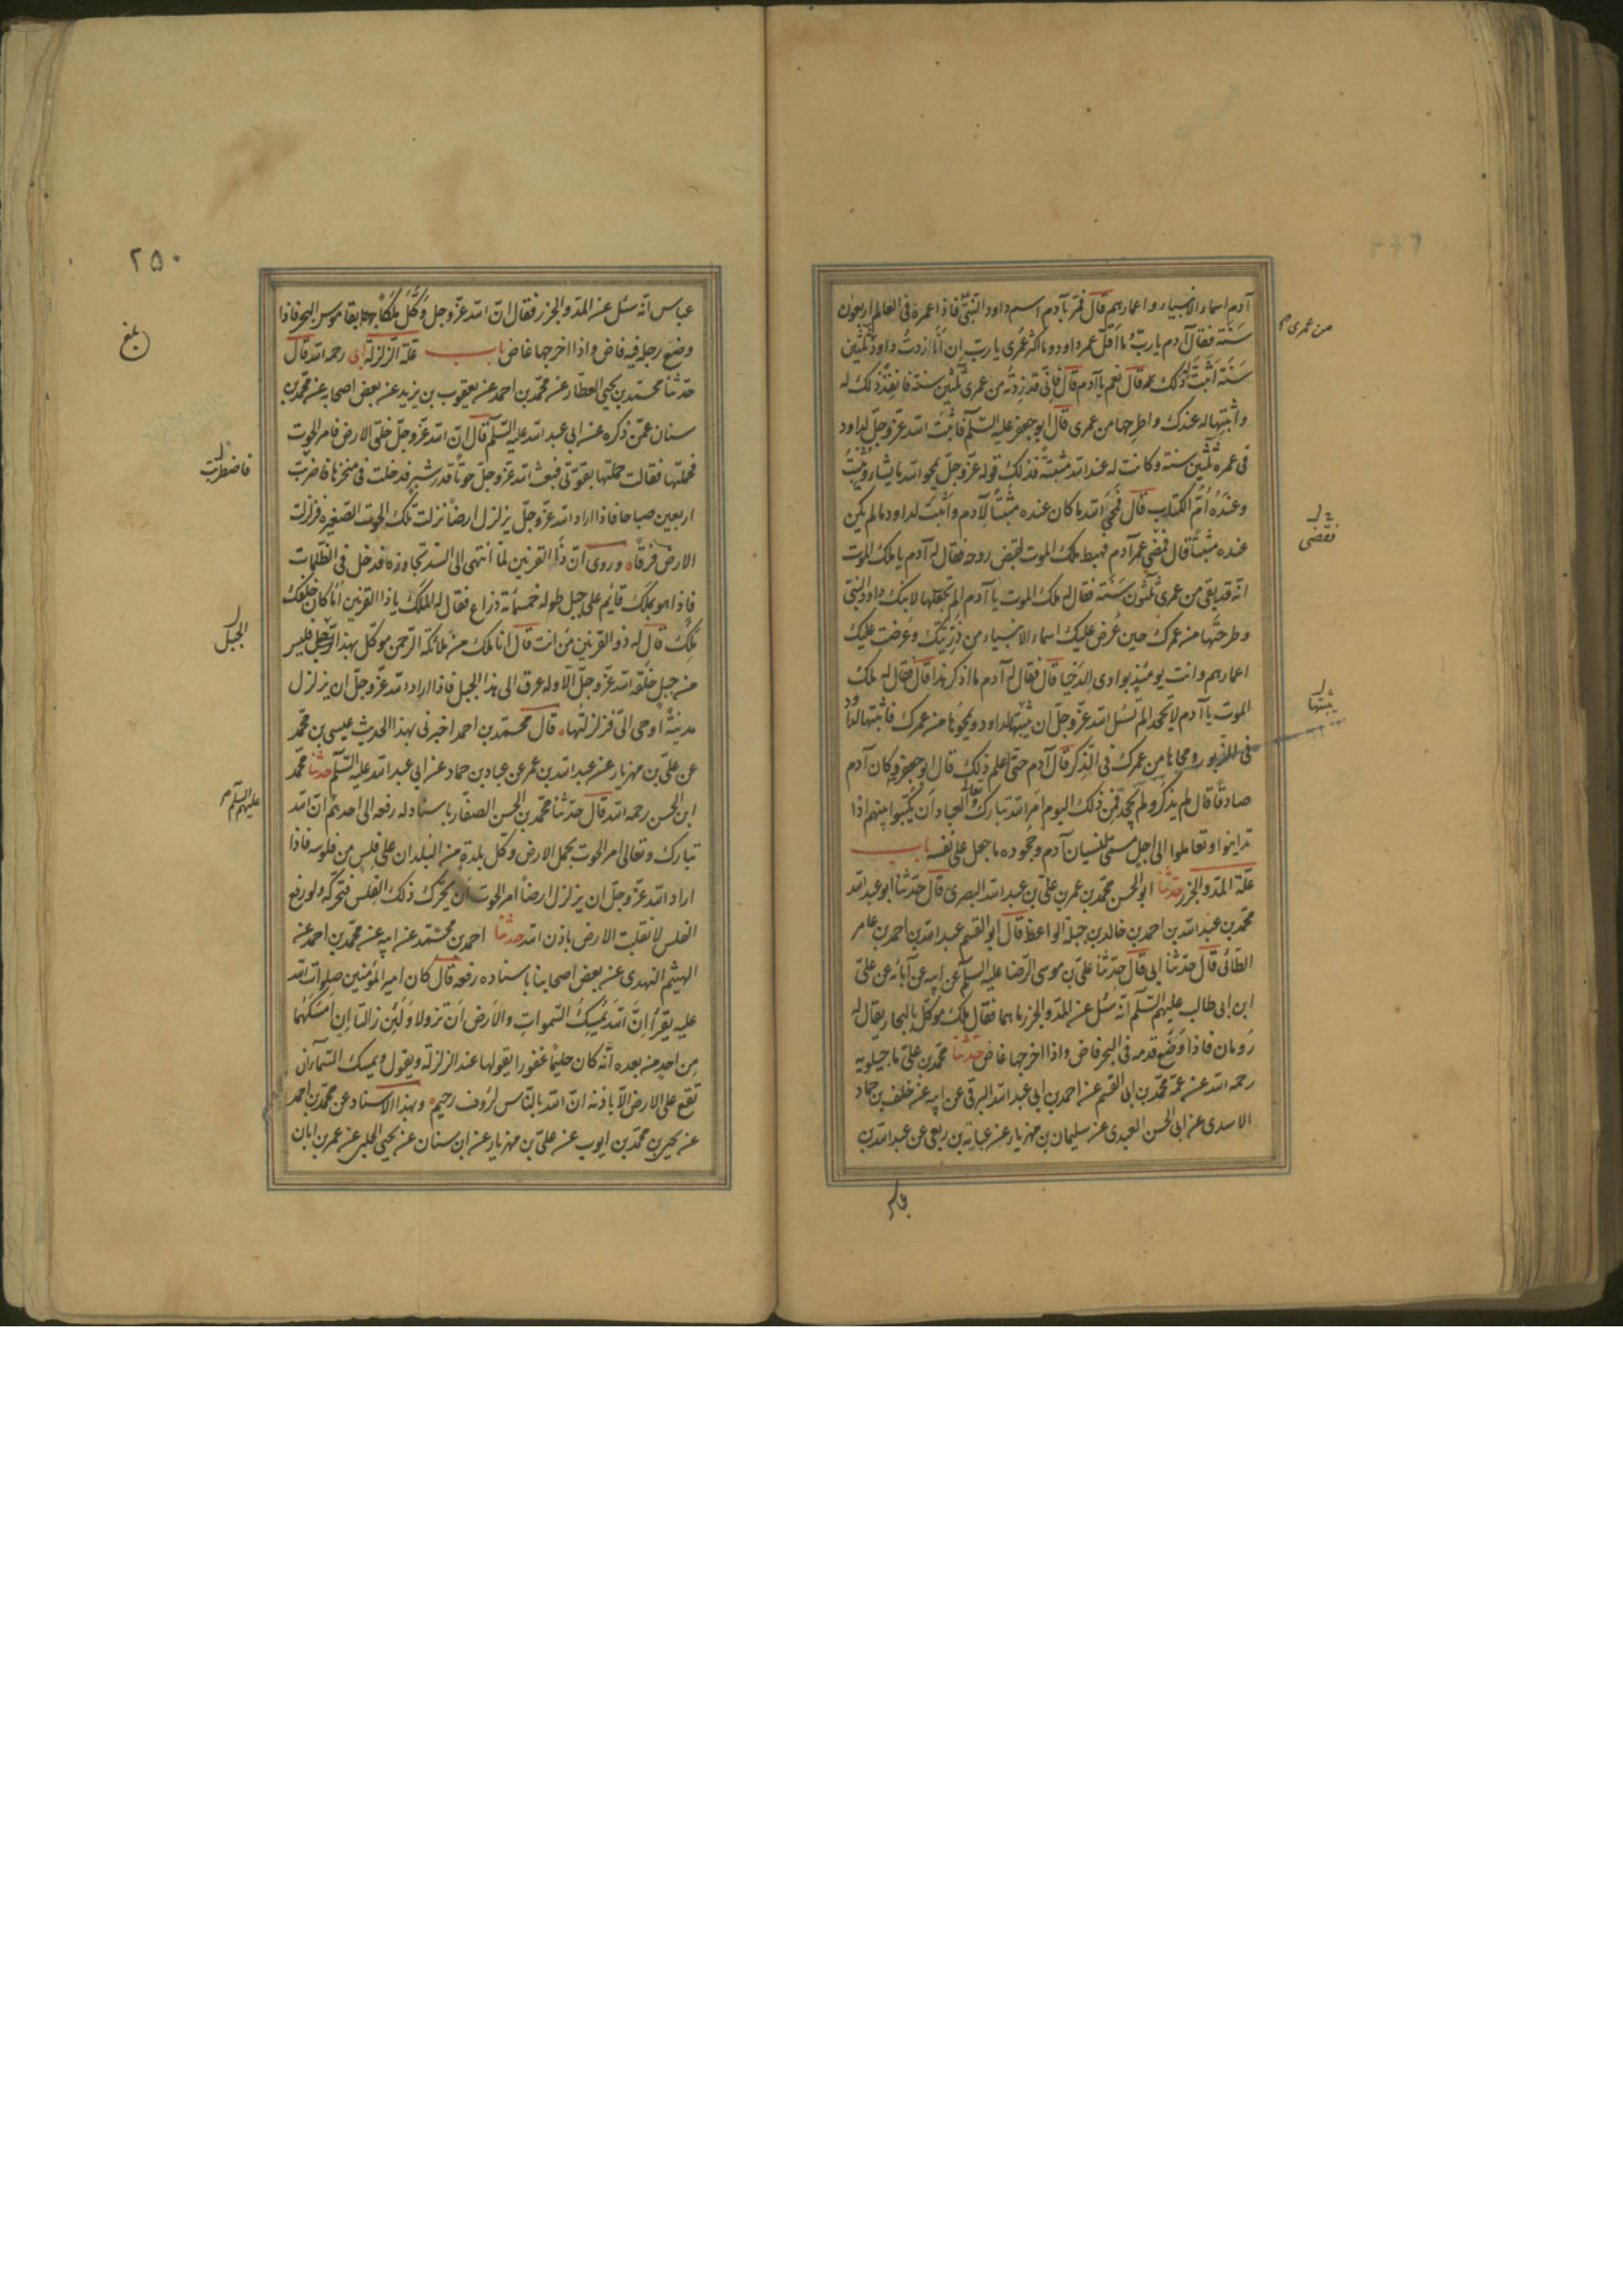 آدم اسماء الانبياء و اعمارهم قال فمرّ بآدم اسم داود النبيّ فاذا عمره فى العالم اربعون
من عمرى
سنة فقال آدم يا ربّ ما اقلّ عمر داود و ما اكثر عمرى يا ربّ ان انا ازدتُ داود ثلثين
سنة اثبت ذلك له قال نعم يا آدم قال فانّى قد زدته من عمرى ثلثين سنة فانفذ ذلك له
و اثبتها له عندك و اطرحها من عمرى قال ابو جعفر عليه السّلم فاثبت الله عزّ و جلّ لداود
فى عمره ثلثين سنة و كانت له عند الله مثبتة فذلك قوله عزّ و جلّ يمحو الله ما يشاء و يثبتُ
و عنده اُمّ الكتاب قال فمحى الله ما كان عنده مثبتًا لآدم و اثبت لداود ما لم يكن
فقضى
عنده مثبتًا قال فمضى عمر آدم فهبط ملك الموت لقبض روحه فقال له آدم يا ملك الموت
انّه قد بقى من عمرى ثلثون سنة فقال له ملك الموت يا آدم الم تجعلها لابنك داود النبىّ
و طرحتها من عمرك حين عُرض عليك اسماء الانبياء من ذرّيتك و عُرضت عليك
اعمارهم و انت يومئذٍ بوادى الدخيا قال فقال له آدم ما اذكر هذا قال فقال له ملك
يثبتها
الموت يا آدم لا تجحد الم تسئل الله عزّ و جلّ ان يثبتها لداود و يمحوها من عمرك فاثبتها لداود
فى الزبور و محاها من عمرك فى الذّكر قال آدم حتى اعلم ذلك قال ابو جعفر و كان آدم
صادقًا قال لم يذكر و لم يجحد فمن ذلك اليوم امر الله تبارك و تعالى العباد ان يكتبوا بينهم اذا
تداينوا و تعاملوا الى اجل مسمّى لنسيان آدم و جحوده ما جعل على نفسه باب
علّة المدّ و الجزر حدّثنا ابو الحسن محمّد بن عمر بن علىّ بن عبد الله البصرى قال حدّثنا ابو عبد الله
محمّد بن عبد الله بن احمد بن خالد بن جبلة الواعظ قال ابو القسم عبد الله بن احمد بن عامر
الطائى قال حدّثنا ابى قال حدّثنا علىّ بن موسى الرّضا عليه السلم عن ابيه عن آبائه عن علىّ
ابن ابى طالب عليهم السّلم انّه سُئل عن المدّ و الجزر ما هما فقال ملك موكّل بالبحار يقال له
رُومان فاذا وضع قدمه فى البحر فاض و اذا اخرجها غاض حدّثنا محمّد بن علىّ ماجيلويه
رحمه الله عن عمّه محمّد بن ابى القسم عن احمد بن ابى عبد الله البرقى عن ابيه عن خلف بن حمّاد
الاسدى عن ابى الحسن العبدى عن سليمان بن مهزيار عن عباية بن ربعى عن عبد الله بن
٢٥٠
عباس انّه سئل عن المدّ و الجزر فقال انّ الله عزّ و جل وكّل ملكًا بقاموس البحر فاذا
بلغ
وضع رجله فيه فاض و اذا اخرجها غاض باب علّة الزلزلة ابى رحمه الله قال
حدّثنا محمّد بن يحيى العطّار عن محمّد بن احمد عن يعقوب بن يزيد عن بعض اصحابه عن محمّد بن
سنان عمّن ذكره عن ابى عبد الله عليه السّلم قال انّ الله عزّ و جلّ خلق الارض فامر الحوت
فاضطربت
فحملتها فقالت حملتها بقوّتى فبعث الله عزّ و جلّ حوتًا قدر شبر فدخلت فى منخرها فاضربت
اربعين صباحا فاذا اراد الله عزّ و جلّ يزلزل ارضًا نزلت تلك الحوت الصّغيره فزلزلت
الارض فرقًا و روى انّ ذا القرنين لمّا انتهى الى السّد تجاوزه فدخل فى الظّلمات
فاذا هو بملك قايم على جبل طوله خمسمائة ذراع فقال له الملك يا ذا القرنين اما كان خلفك
الجبل
ملك قال له ذو القرنين من انت قال انا ملك من ملائكة الرّحمن موكّل بهذا الجبل فليس
من جبلٍ خلقه الله عزّ و جلّ الّا و له عرق الى هذا الجبل فاذا اراد الله عزّ و جلّ ان يزلزل
مدينة اوحى الىّ فزلزلتها قال محمّد بن احمد اخبرنى بهذا الحديث عيسى بن محمّد
عن علىّ بن مهزيار عن عبد الله بن عمر عن عباد بن حماد عن ابى عبد الله عليه السّلم حدّثنا محمّد
عليهم السّلم
ابن الحسن رحمه الله قال حدّثنا محمّد بن الحسن الصفّار باسناد له رفعه الى احدهم انّ الله
تبارك و تعالى امر الحوت بحمل الارض و كل بلدةٍ من البلدان على فلس من فلوسه فاذا
اراد الله عزّ و جلّ ان يزلزل ارضًا امر الحوت ان يحرّك ذلك الفلس فتحرّكه و لو رفع
الفلس لانقلبت الارض باذن الله حدّثنا احمد بن محمّد عن ابيه عن محمّد بن احمد عن
الهيثم النهدى عن بعض اصحابنا باسناده رفعه قال كان امير المؤمنين صلوات الله
عليه يقرأ انّ الله يمسك السّموات و الارض ان تزولا و لئن زالتا ان امسكهما
من احدٍ من بعده انّه كان حليمًا غفورا يقولها عند الزلزلة و يقول و يمسك السّماء ان
تقع على الارض الّا باذنه انّ الله بالنّاس لرؤف رحيم و بهذا الاسناد عن محمّد بن احمد
عن يحيى بن محمّد بن ايوب عن علىّ بن مهزيار عن ابن سنان عن يحيى الحلبى عن عمر بن ابان